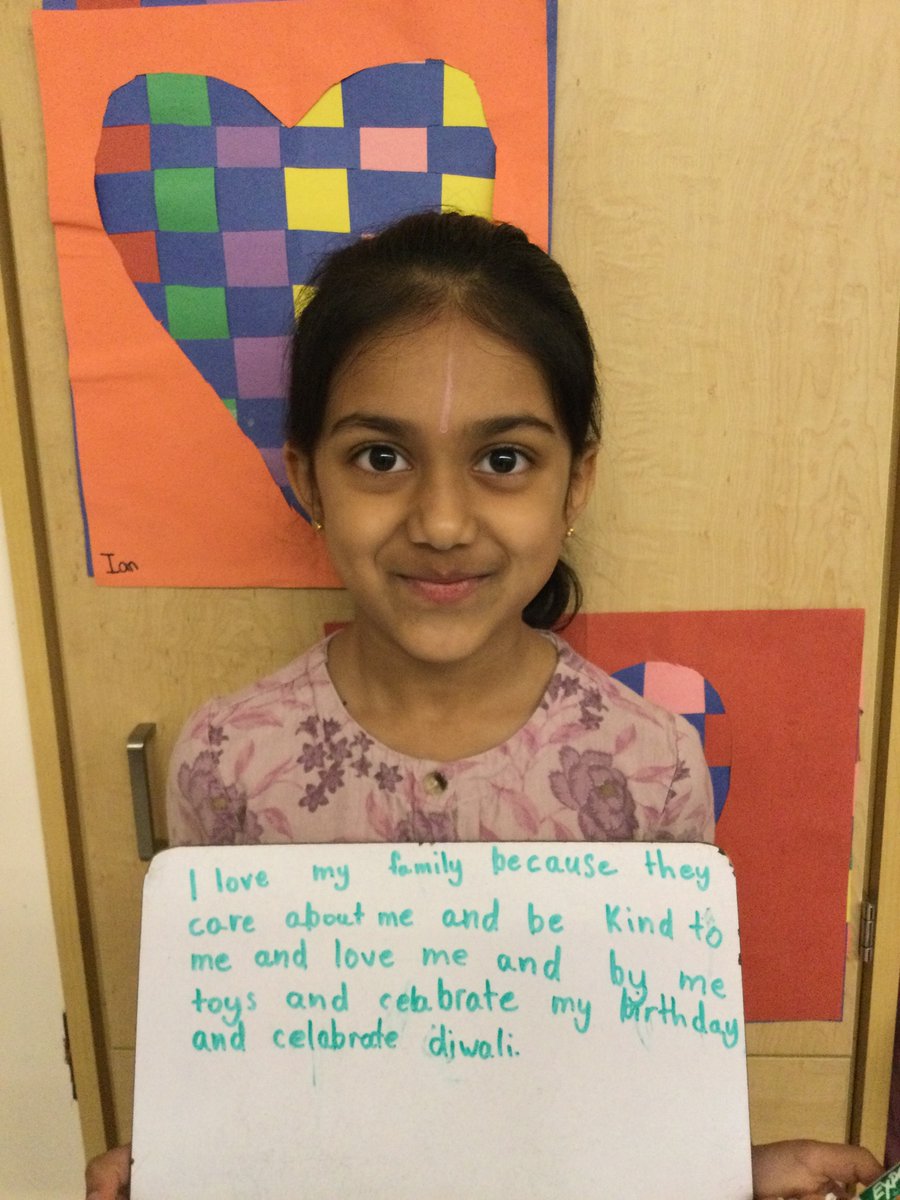 Ian
I love my family because they
care about me and be kind to
me and love me and by me
toys and celabrate my birthday
and celabrate diwali.
EXPO